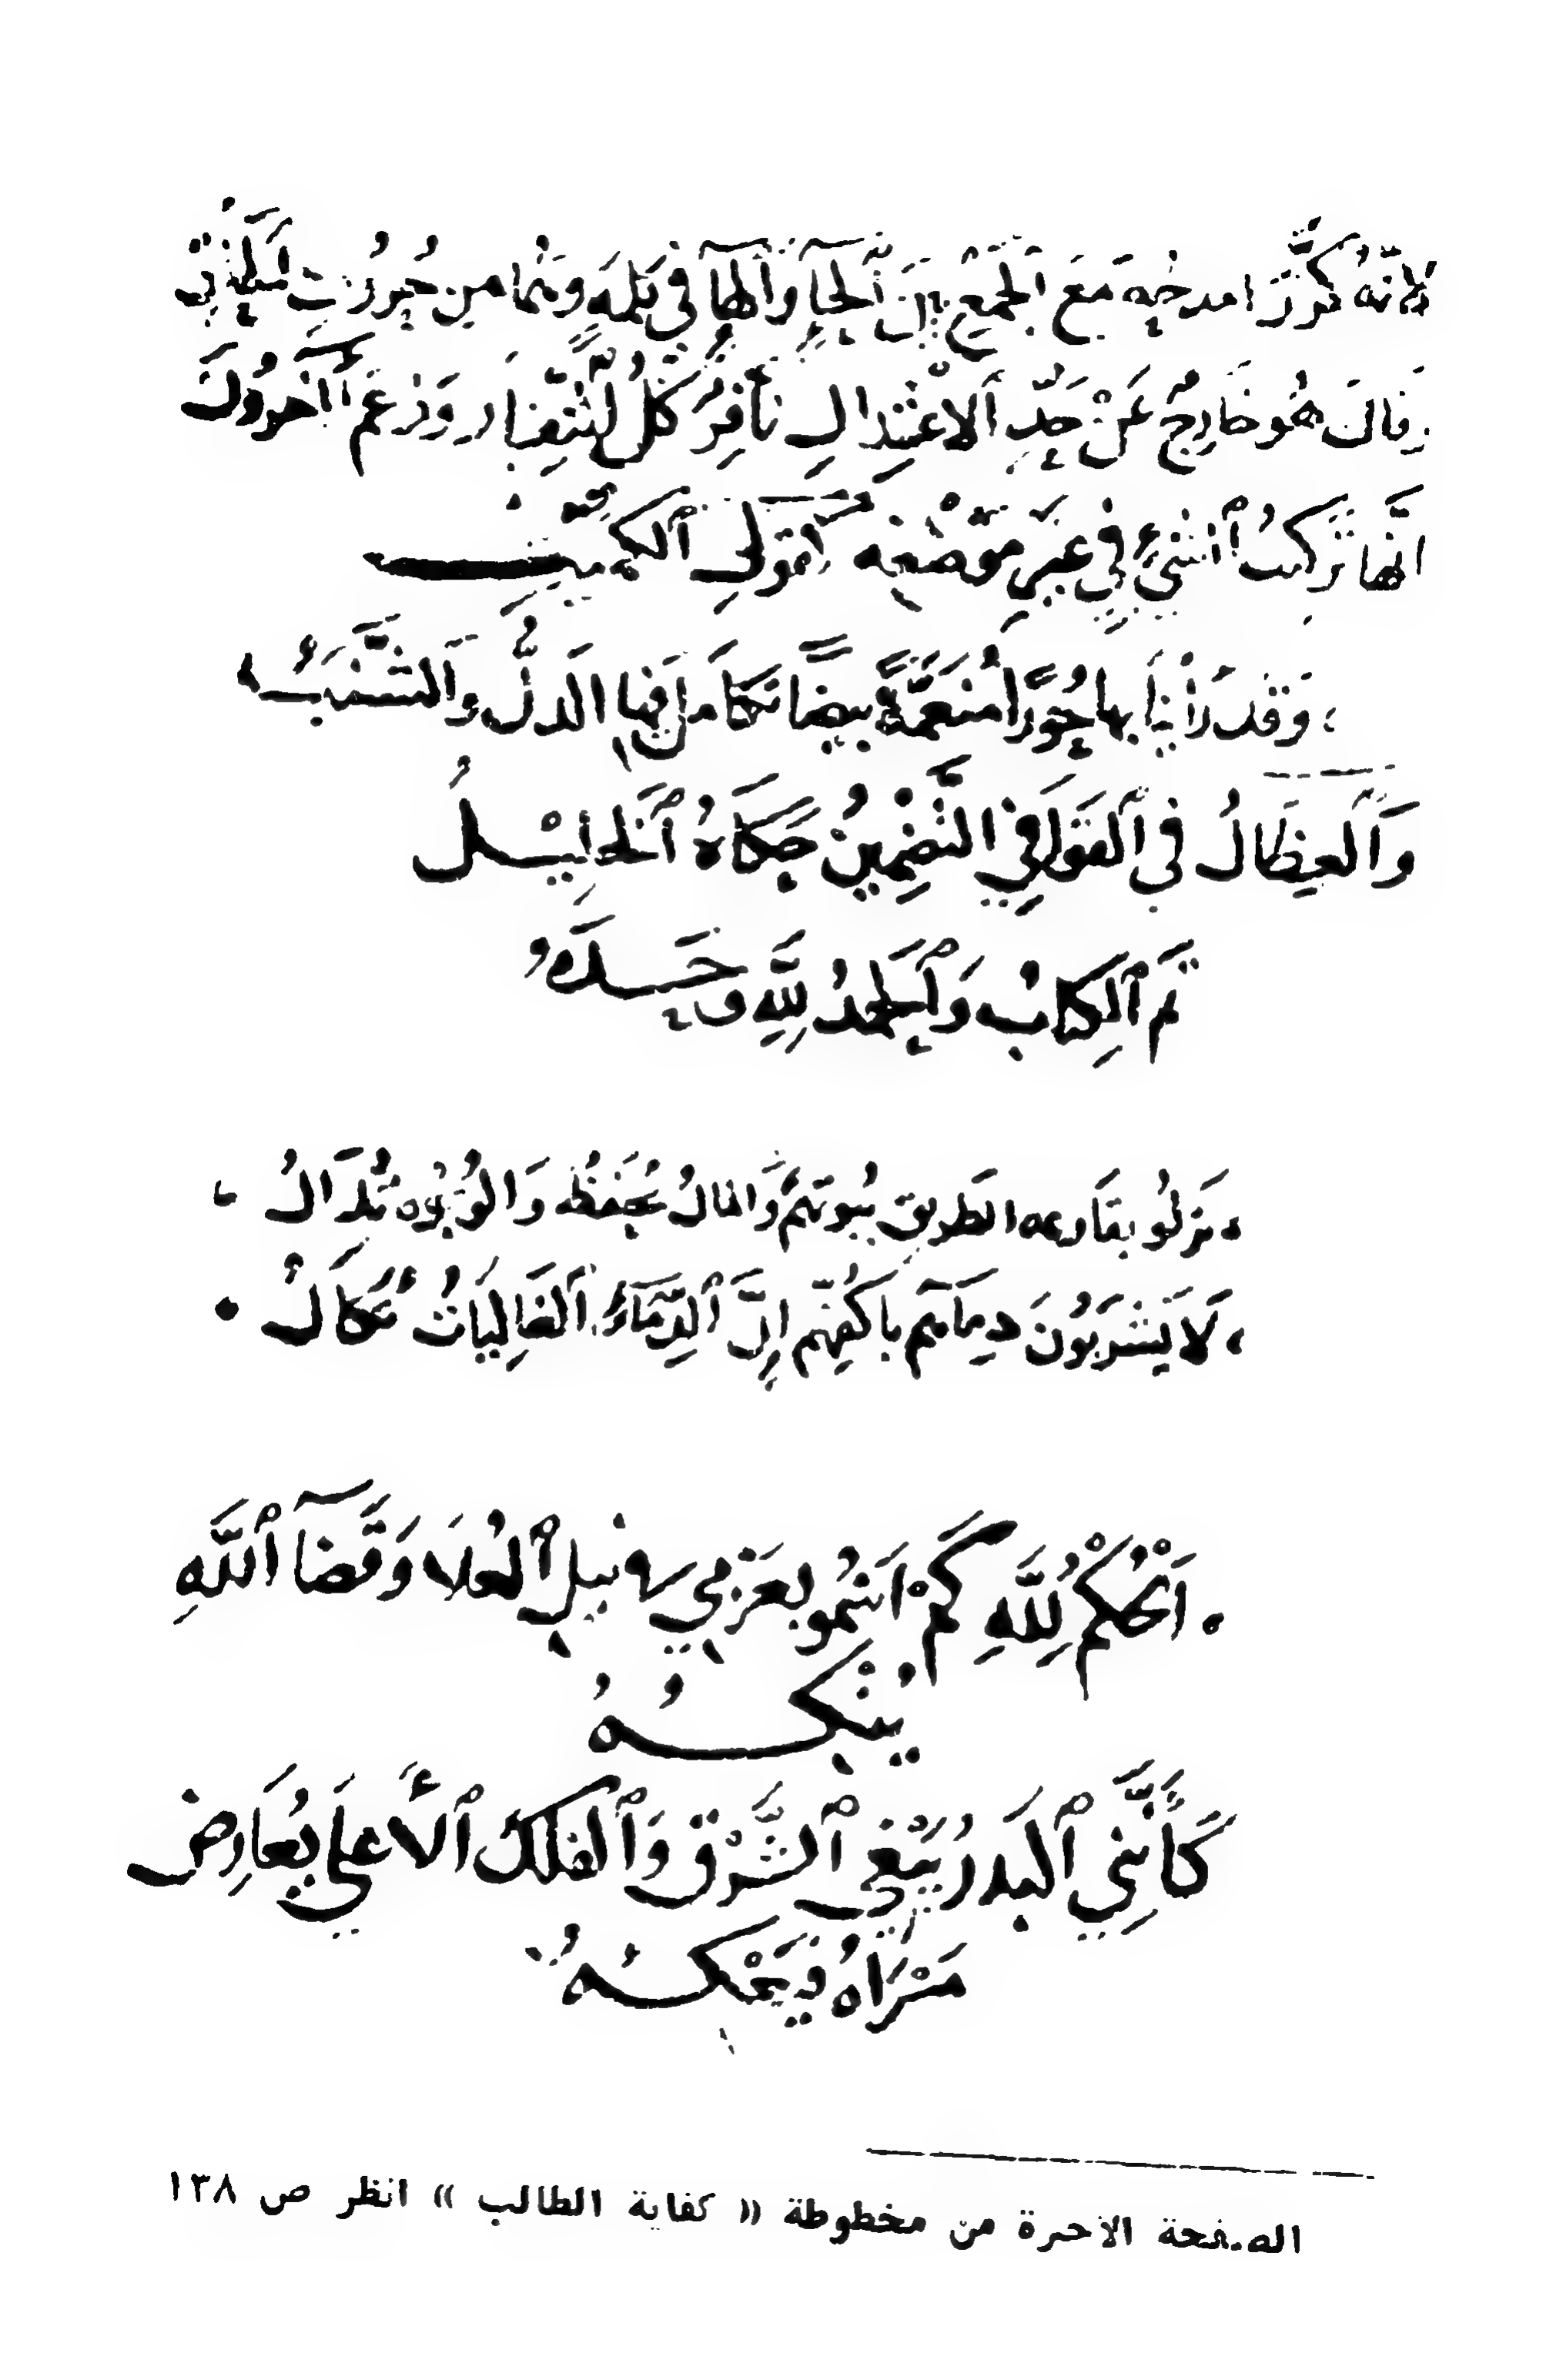 لانَّهُ كَرَّرَ امدحه مَعَ الجَمْعِ بَيْنَ اَلحَآءِ وَالهَآءِ في كَلِمَةٍ وَهُمَا من حُروُفِ اَلحَلْقِ
وَقالَ هُوَ خَارِجٌ عَنْ حَدِّ اَلاعْتِدالِ نَافِرٌ كُلَّ التِّنفَارِ وَزعَمَ آخَروُنَ
انَّها تَركيبُ اَلشَّيْءِ في غَيرِ مَوْضعِهِ كَقَوْلِ اَلكُمَيْتِ
، وَقَد رَأيْنَا بها حُوْرًا مُنَعَّمَةً بيضًا تَكَامَلَ فيهَا الدَلُّ وَالشَّنَبُ
وَالعِظَالُ في اَلقَوَافِي التَّضمِينُ حَكَاهُ اَلخَلِيْلُ
تَم اَلكِتابُ وَاَلحَمدُ لِلَّهِ وَحْدَهُ
، نَزلُو بقَارعه الطَريق بُيُوتهُم وَالمَالُ يُحفَظُ وَالوُجُوه تُذَالُ ،
، لَا يَشربُونَ دِمَآءهُم بأكُفِّهِم إِنَّ اَلدِّمَآءَ اَلغَالِيَاتُ تُكَالُ •
. اَلحُكْمُ لِلَّهِ كَمْ اَسْمُو بعَزمي في نَيلِ اَلعُلَا وَقَضَآ اَللَّهِ
يُنكِسُهُ
كَأَنَّنِي اَلبَدرُ يَبْغي اَلشَّرْقَ وَاَلفَلَكُ اَلأَعلَى يُعَارِضُ
مَسْرَاهُ فَيَعْكِسُهُ
الصفحة الأخيرة من مخطوطة « كفاية الطالب » انظر ص ١٣٨